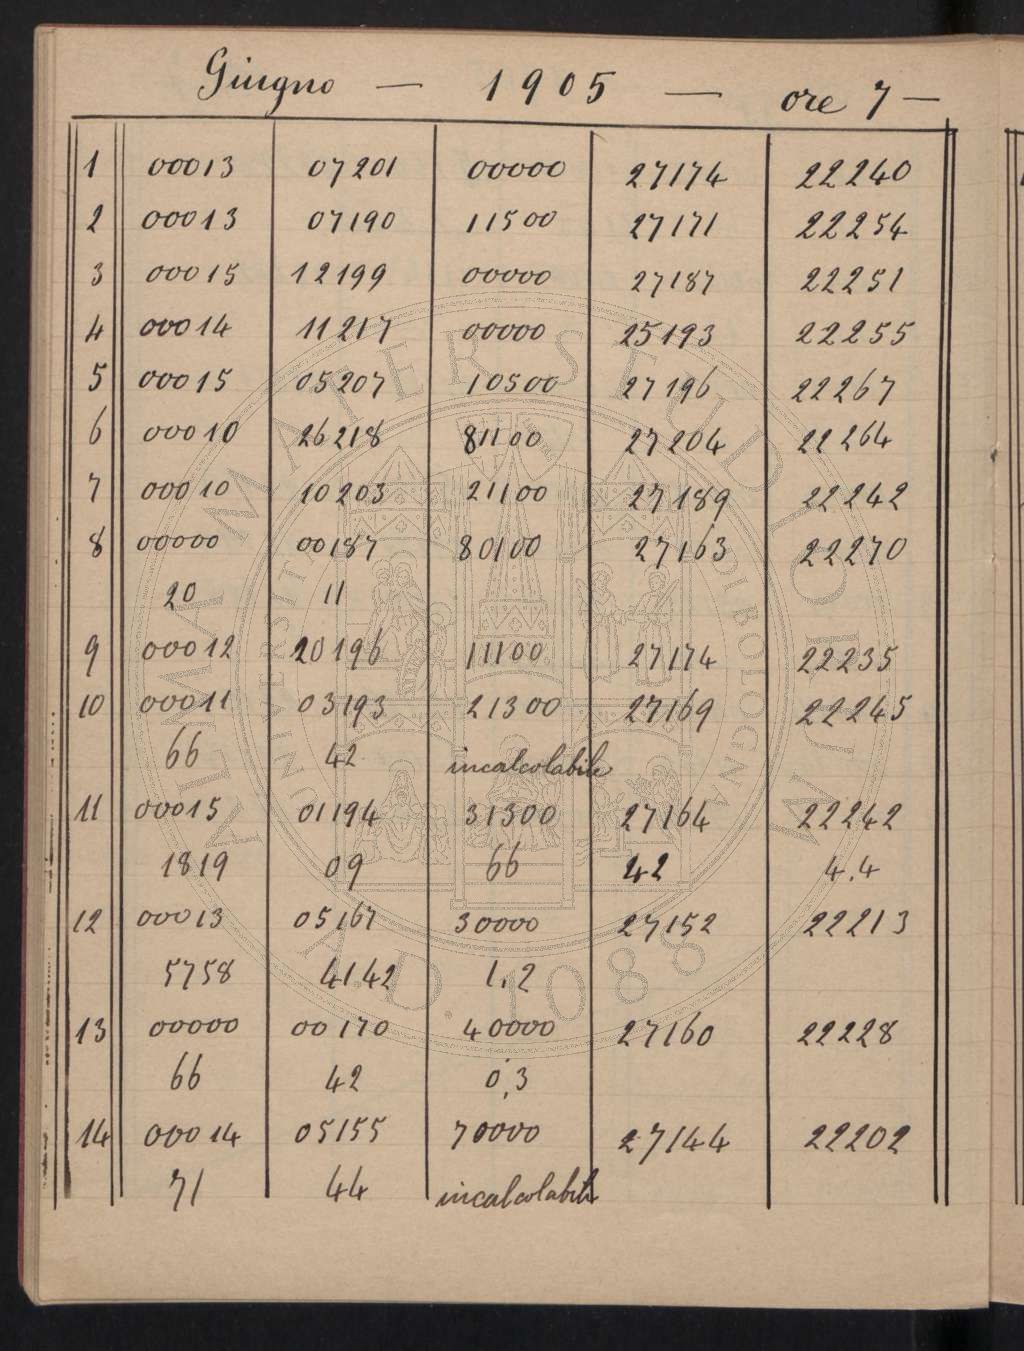 Giugno — 1905 — ore 7 —
1 00013 07201 00000 27174 22240
2 00013 07190 11500 27171 22254
3 00015 12199 00000 27187 22251
4 00014 11217 00000 25193 22255
5 00015 05207 10500 27196 22267
6 00010 26218 81100 27204 22264
7 00010 10203 21100 27189 22242
8 00000 00187 80100 27163 22270
20 11
9 00012 20196 11100 27174 22235
10 00011 03193 21300 27169 22245
66 42 incalcolabile
11 00015 01194 31300 27164 22242
1819 09 66 42 4.4
12 00013 05167 30000 27152 22213
5758 4142 1.2
13 00000 00170 40000 27160 22228
66 42 0,3
14 00014 05155 70000 27144 22202
71 44 incalcolabile
ALMA MATER STUDIORUM
UNIVERSITÀ DI BOLOGNA
A.D. 1088